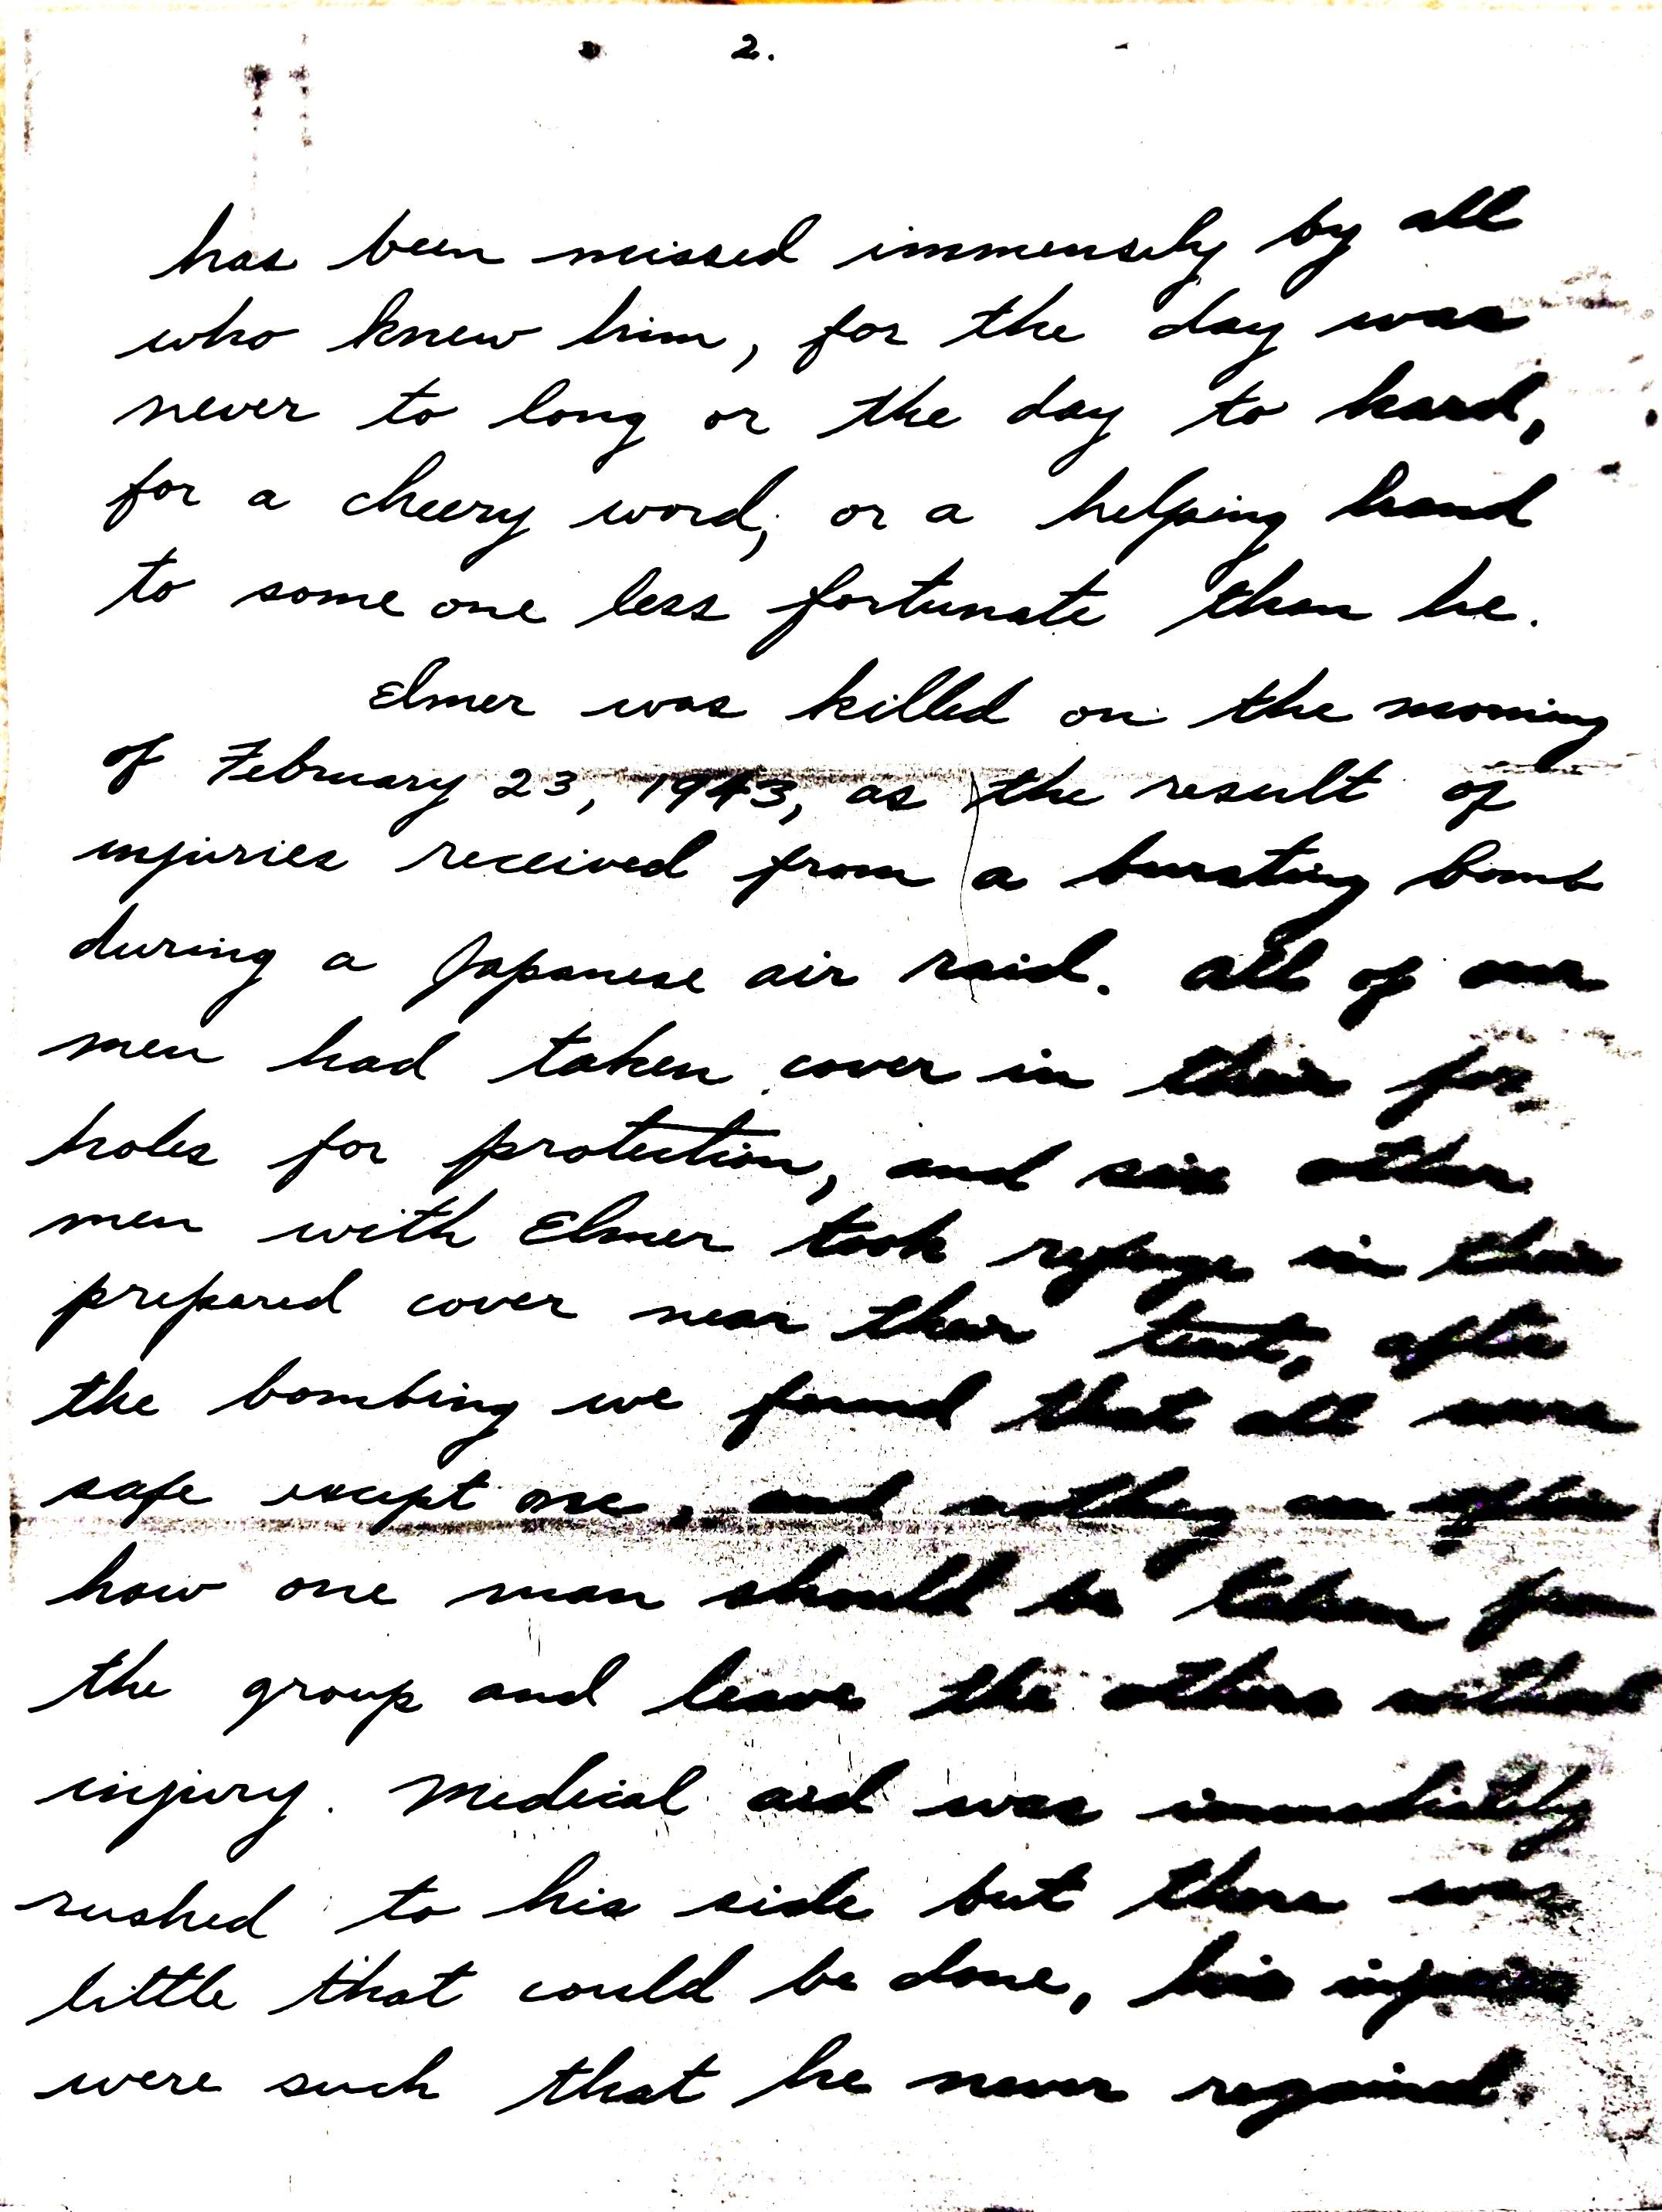 2.
has been missed immensely by all
who knew him, for the day was
never to long or the day to hard,
for a cheery word, or a helping hand
to some one less fortunate than he.
Elmer was killed on the morning
of February 23, 1943, as the result of
injuries received from a bursting bomb
during a Japanese air raid. All of our
men had taken cover in their fox
holes for protection, and six other
men with Elmer took refuge in their
prepared cover near their tent, after
the bombing we found that all were
safe except one, and nothing can explain
how one man should be taken from
the group and leave the others without
injury. Medical aid was immediately
rushed to his side but there was
little that could be done, his injuries
were such that he never regained